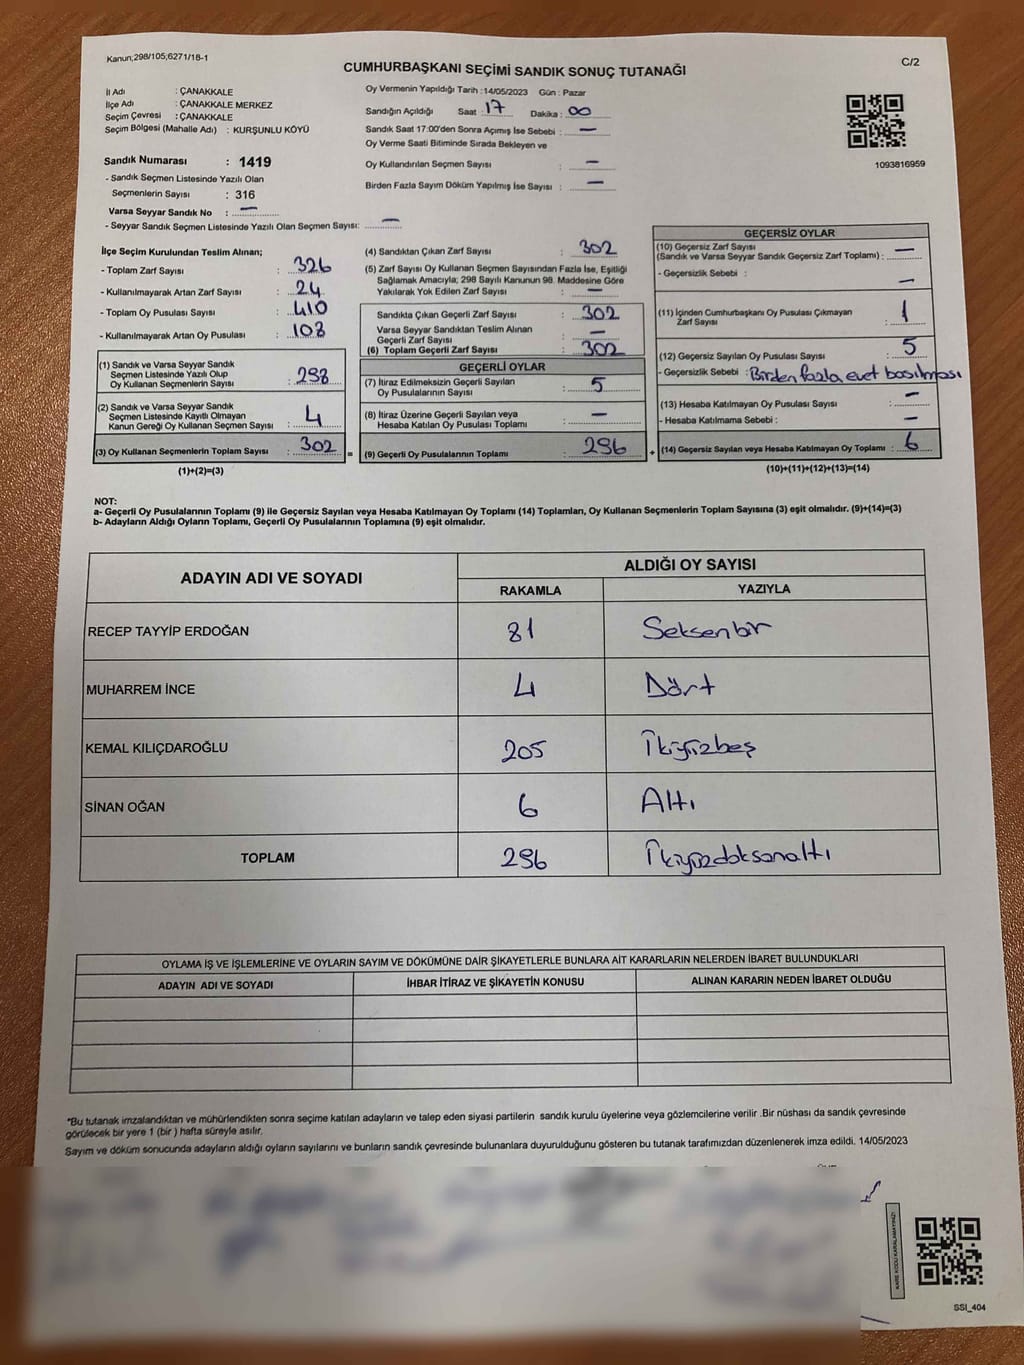 Kanun;298/105;6271/18-1
C/2
CUMHURBAŞKANI SEÇİMİ SANDIK SONUÇ TUTANAĞI
İl Adı : ÇANAKKALE
İlçe Adı : ÇANAKKALE MERKEZ
Seçim Çevresi : ÇANAKKALE
Seçim Bölgesi (Mahalle Adı) : KURŞUNLU KÖYÜ
Sandık Numarası : 1419
- Sandık Seçmen Listesinde Yazılı Olan
Seçmenlerin Sayısı : 316
Varsa Seyyar Sandık No : —
- Seyyar Sandık Seçmen Listesinde Yazılı Olan Seçmen Sayısı: —
Oy Vermenin Yapıldığı Tarih :14/05/2023 Gün : Pazar
Sandığın Açıldığı Saat 17 Dakika : 00
Sandık Saat 17:00'den Sonra Açımış İse Sebebi : —
Oy Verme Saati Bitiminde Sırada Bekleyen ve
Oy Kullandırılan Seçmen Sayısı : —
Birden Fazla Sayım Döküm Yapılmış İse Sayısı : —
1093816959
İlçe Seçim Kurulundan Teslim Alınan;
- Toplam Zarf Sayısı : 326
- Kullanılmayarak Artan Zarf Sayısı : 24
- Toplam Oy Pusulası Sayısı : 410
- Kullanılmayarak Artan Oy Pusulası : 108
(1) Sandık ve Varsa Seyyar Sandık
Seçmen Listesinde Yazılı Olup
Oy Kullanan Seçmenlerin Sayısı : 298
(2) Sandık ve Varsa Seyyar Sandık
Seçmen Listesinde Kayıtlı Olmayan
Kanun Gereği Oy Kullanan Seçmen Sayısı : 4
(3) Oy Kullanan Seçmenlerin Toplam Sayısı : 302
(1)+(2)=(3)
(4) Sandıktan Çıkan Zarf Sayısı : 302
(5) Zarf Sayısı Oy Kullanan Seçmen Sayısından Fazla İse, Eşitliği
Sağlamak Amacıyla; 298 Sayılı Kanunun 98. Maddesine Göre
Yakılarak Yok Edilen Zarf Sayısı : —
Sandıkta Çıkan Geçerli Zarf Sayısı : 302
Varsa Seyyar Sandıktan Teslim Alınan
Geçerli Zarf Sayısı : —
(6) Toplam Geçerli Zarf Sayısı : 302
GEÇERLİ OYLAR
(7) İtiraz Edilmeksizin Geçerli Sayılan
Oy Pusulalarının Sayısı : 5
(8) İtiraz Üzerine Geçerli Sayılan veya
Hesaba Katılan Oy Pusulası Toplamı : —
= (9) Geçerli Oy Pusulalarının Toplamı : 296
GEÇERSİZ OYLAR
(10) Geçersiz Zarf Sayısı
(Sandık ve Varsa Seyyar Sandık Geçersiz Zarf Toplamı) : —
- Geçersizlik Sebebi : —
(11) İçinden Cumhurbaşkanı Oy Pusulası Çıkmayan
Zarf Sayısı : 1
(12) Geçersiz Sayılan Oy Pusulası Sayısı : 5
- Geçersizlik Sebebi : Birden fazla evet basılması
(13) Hesaba Katılmayan Oy Pusulası Sayısı : —
- Hesaba Katılmama Sebebi : —
+ (14) Geçersiz Sayılan veya Hesaba Katılmayan Oy Toplamı : 6
(10)+(11)+(12)+(13)=(14)
NOT:
a- Geçerli Oy Pusulalarının Toplamı (9) ile Geçersiz Sayılan veya Hesaba Katılmayan Oy Toplamı (14) Toplamları, Oy Kullanan Seçmenlerin Toplam Sayısına (3) eşit olmalıdır. (9)+(14)=(3)
b- Adayların Aldığı Oyların Toplamı, Geçerli Oy Pusulalarının Toplamına (9) eşit olmalıdır.
ADAYIN ADI VE SOYADI
ALDIĞI OY SAYISI
RAKAMLA YAZIYLA
RECEP TAYYİP ERDOĞAN 81 Seksenbir
MUHARREM İNCE 4 Dört
KEMAL KILIÇDAROĞLU 205 İkiyüzbeş
SİNAN OĞAN 6 Altı
TOPLAM 296 İkiyüzdoksanaltı
OYLAMA İŞ VE İŞLEMLERİNE VE OYLARIN SAYIM VE DÖKÜMÜNE DAİR ŞİKAYETLERLE BUNLARA AİT KARARLARIN NELERDEN İBARET BULUNDUKLARI
ADAYIN ADI VE SOYADI İHBAR İTİRAZ VE ŞİKAYETİN KONUSU ALINAN KARARIN NEDEN İBARET OLDUĞU
*Bu tutanak imzalandıktan ve mühürlendikten sonra seçime katılan adayların ve talep eden siyasi partilerin sandık kurulu üyelerine veya gözlemcilerine verilir .Bir nüshası da sandık çevresinde
görülecek bir yere 1 (bir ) hafta süreyle asılır.
Sayım ve döküm sonucunda adayların aldığı oyların sayılarını ve bunların sandık çevresinde bulunanlara duyurulduğunu gösteren bu tutanak tarafımızdan düzenlenerek imza edildi. 14/05/2023
KARE KODU KARALAMAYINIZ!
SSI_404